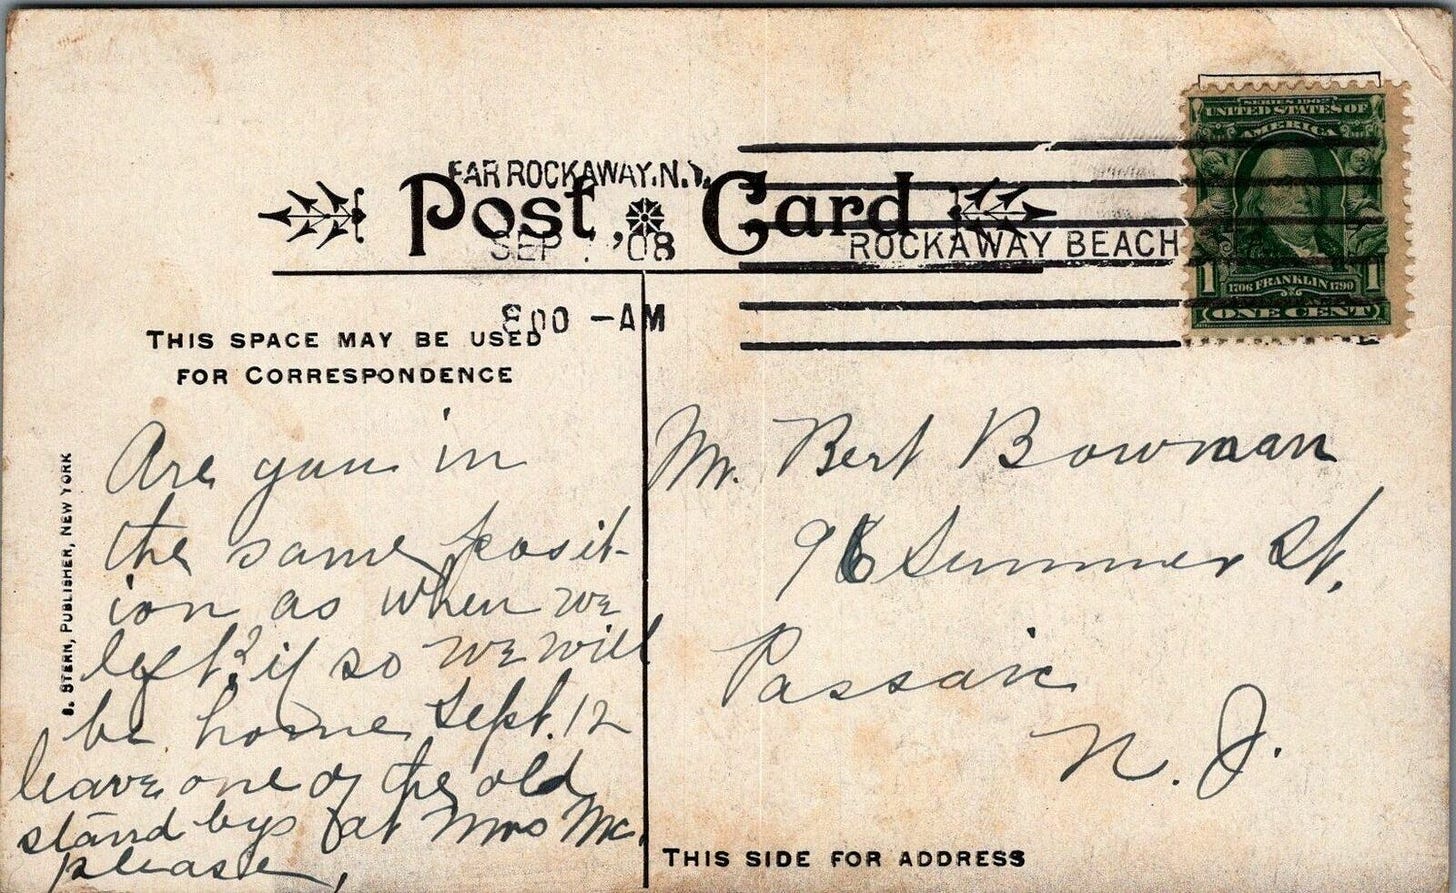 FAR ROCKAWAY, N.Y.
Post Card
SEP 08
ROCKAWAY BEACH
8 00 - AM
SERIES 1902
UNITED STATES OF
AMERICA
1706 FRANKLIN 1790
1 1
ONE CENT
THIS SPACE MAY BE USED
FOR CORRESPONDENCE
S. STERN, PUBLISHER, NEW YORK
Are you in
the same posit-
ion as when we
left? if so we will
be home Sept. 12
leave one of the old
stand bys at Mrs Mc.
please,
Mr. Bert Bowman
96 Summer St.
Passaic
N. J.
THIS SIDE FOR ADDRESS